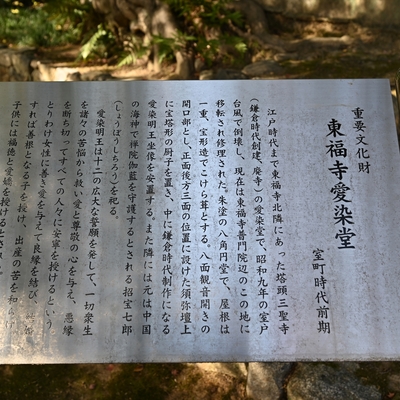 重要文化財
東福寺愛染堂
室町時代前期
江戸時代まで東福寺北隣にあった塔頭三聖寺
（鎌倉時代創建、廃寺）の愛染堂で、昭和九年の室戸
台風で倒壊し、現在は東福寺普門院辺のこの地に
移転され修理された。朱塗の八角円堂で、屋根は
一重、宝形造でこけら葺とする。八面観音開きの
開口部とし、正面後方三面の位置に設けた須弥壇上
に宝塔形の厨子を置き、中に鎌倉時代制作になる
愛染明王坐像を安置する。また隣には元は中国
の海神で禅院伽藍を守護するとされる招宝七郎
（しょうぼうしちろう）を祀る。
愛染明王は十二の広大な誓願を発して、一切衆生
を諸々の苦悩から救い愛と尊敬の心を与え、悪縁
を断ち切ってすべての人々に安寧を授けるという
とりわけ女性に善き愛を与えて良縁を結び、
すれば善根となる子を授け、出産の苦を和らげ
子供には福徳と愛嬌を授けるとされ